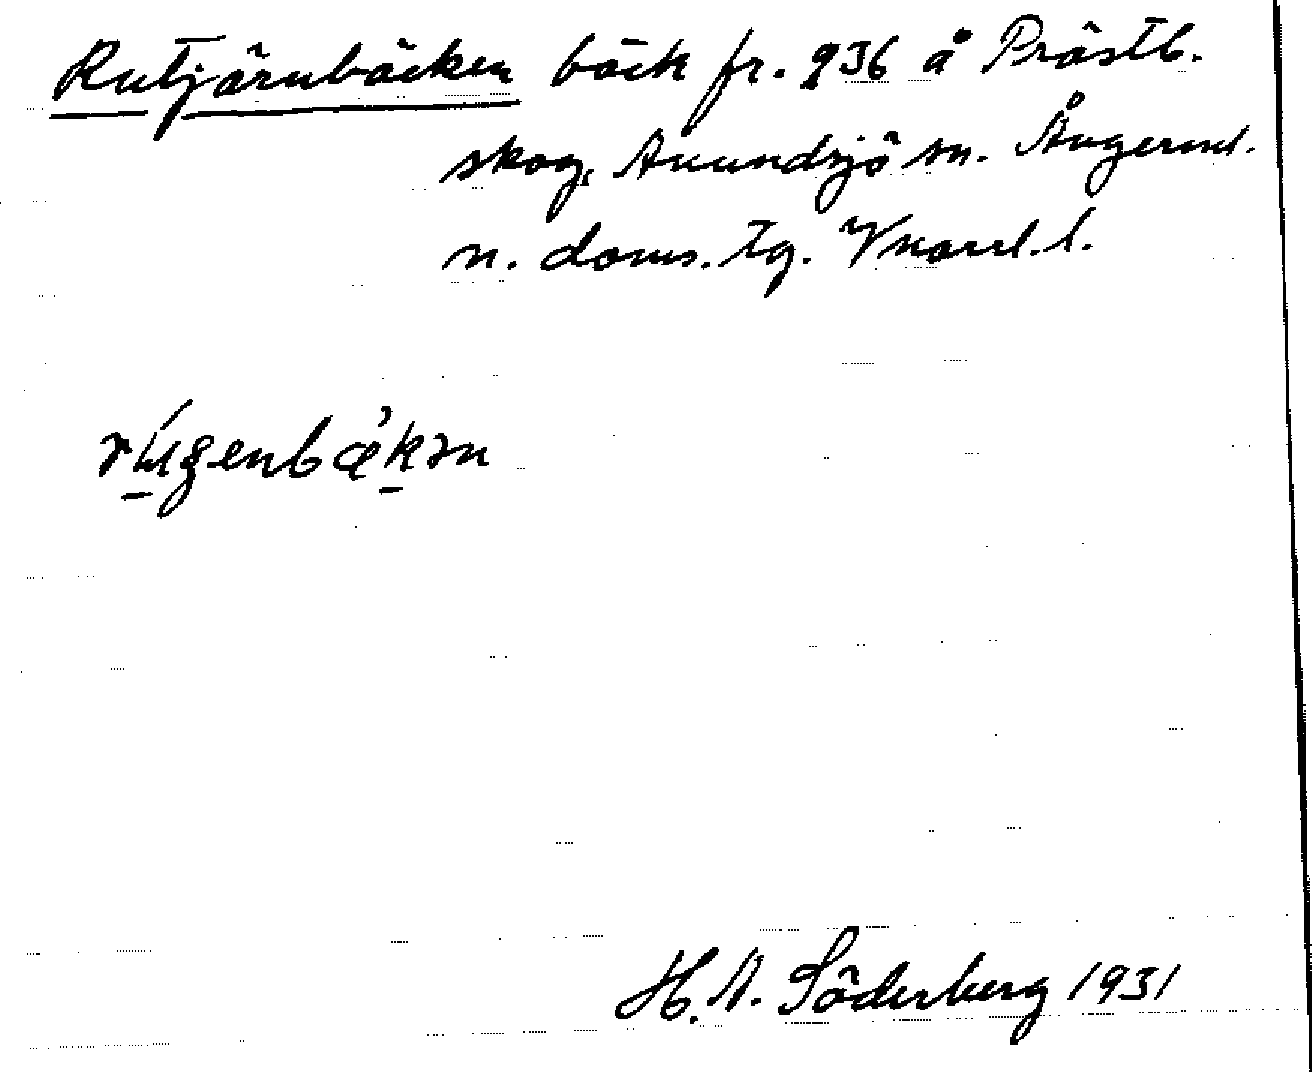 Rutjärnbäcken bäck fr. 936 å Prästb.
skog, Anundsjö sn. Ångerml.
n. doms. tg. Vnorrl. l.
H. A. Söderberg 1931